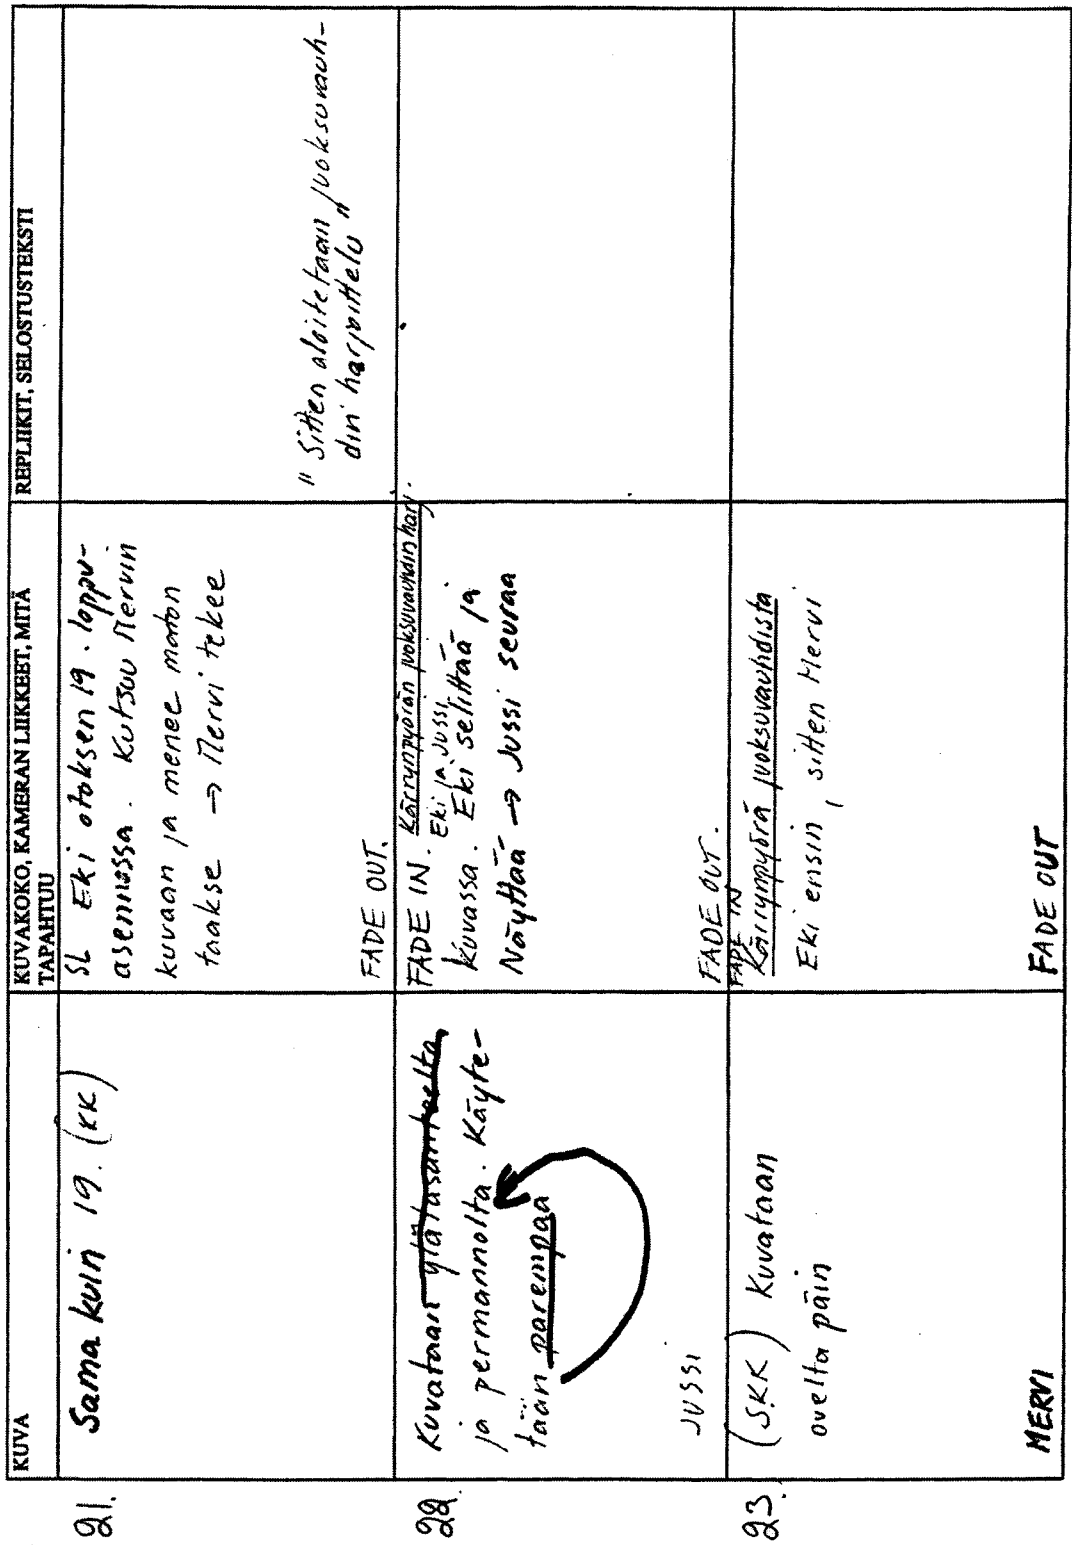 KUVA
KUVAKOKO, KAMERAN LIIKKEET, MITÄ
TAPAHTUU
REPLIIKIT, SELOSTUSTEKSTI
21.
Sama kuin 19. (KK)
SL Eki otoksen 19. loppu-
asennossa. Kutsuu Mervin
kuvaan ja menee maton
taakse → Mervi tekee
FADE OUT.
" Sitten aloitetaan juoksuvauh-
din harjoittelu "
22.
Kuvataan ylätasanteelta
ja permannolta. Käyte-
tään parempaa
JUSSI
FADE IN. Kärrynpyörän juoksuvauhdin harj.
Eki ja Jussi
kuvassa. Eki selittää ja
Näyttää → Jussi seuraa
FADE OUT.
23.
(SKK) Kuvataan
ovelta päin
MERVI
FADE IN
Kärrynpyörä juoksuvauhdista
Eki ensin, sitten Mervi
FADE OUT